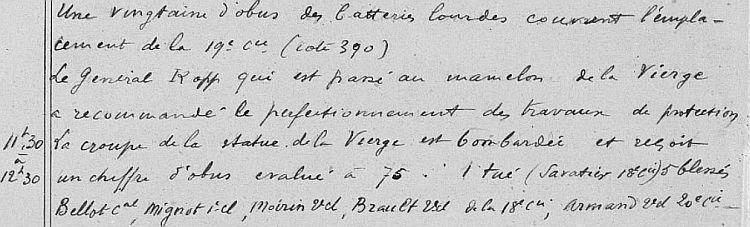 Une vingtaine d'obus des batteries lourdes couvrent l'empla-
cement de la 19e Cie (cote 390)
Le Général Kopp qui est passé au mamelon de la Vierge
a recommandé le perfectionnement des travaux de protection
11h30 La croupe de la statue de la Vierge est bombardée et reçoit
à
12h30 un chiffre d'obus évalué à 75 : 1 tué (Savatier 18e Cie) 5 blessés
Bellot Cal, Mignot 1e cl, Moirin 2e cl, Brault 2e cl de la 18e Cie, Armand 2e cl 20e Cie